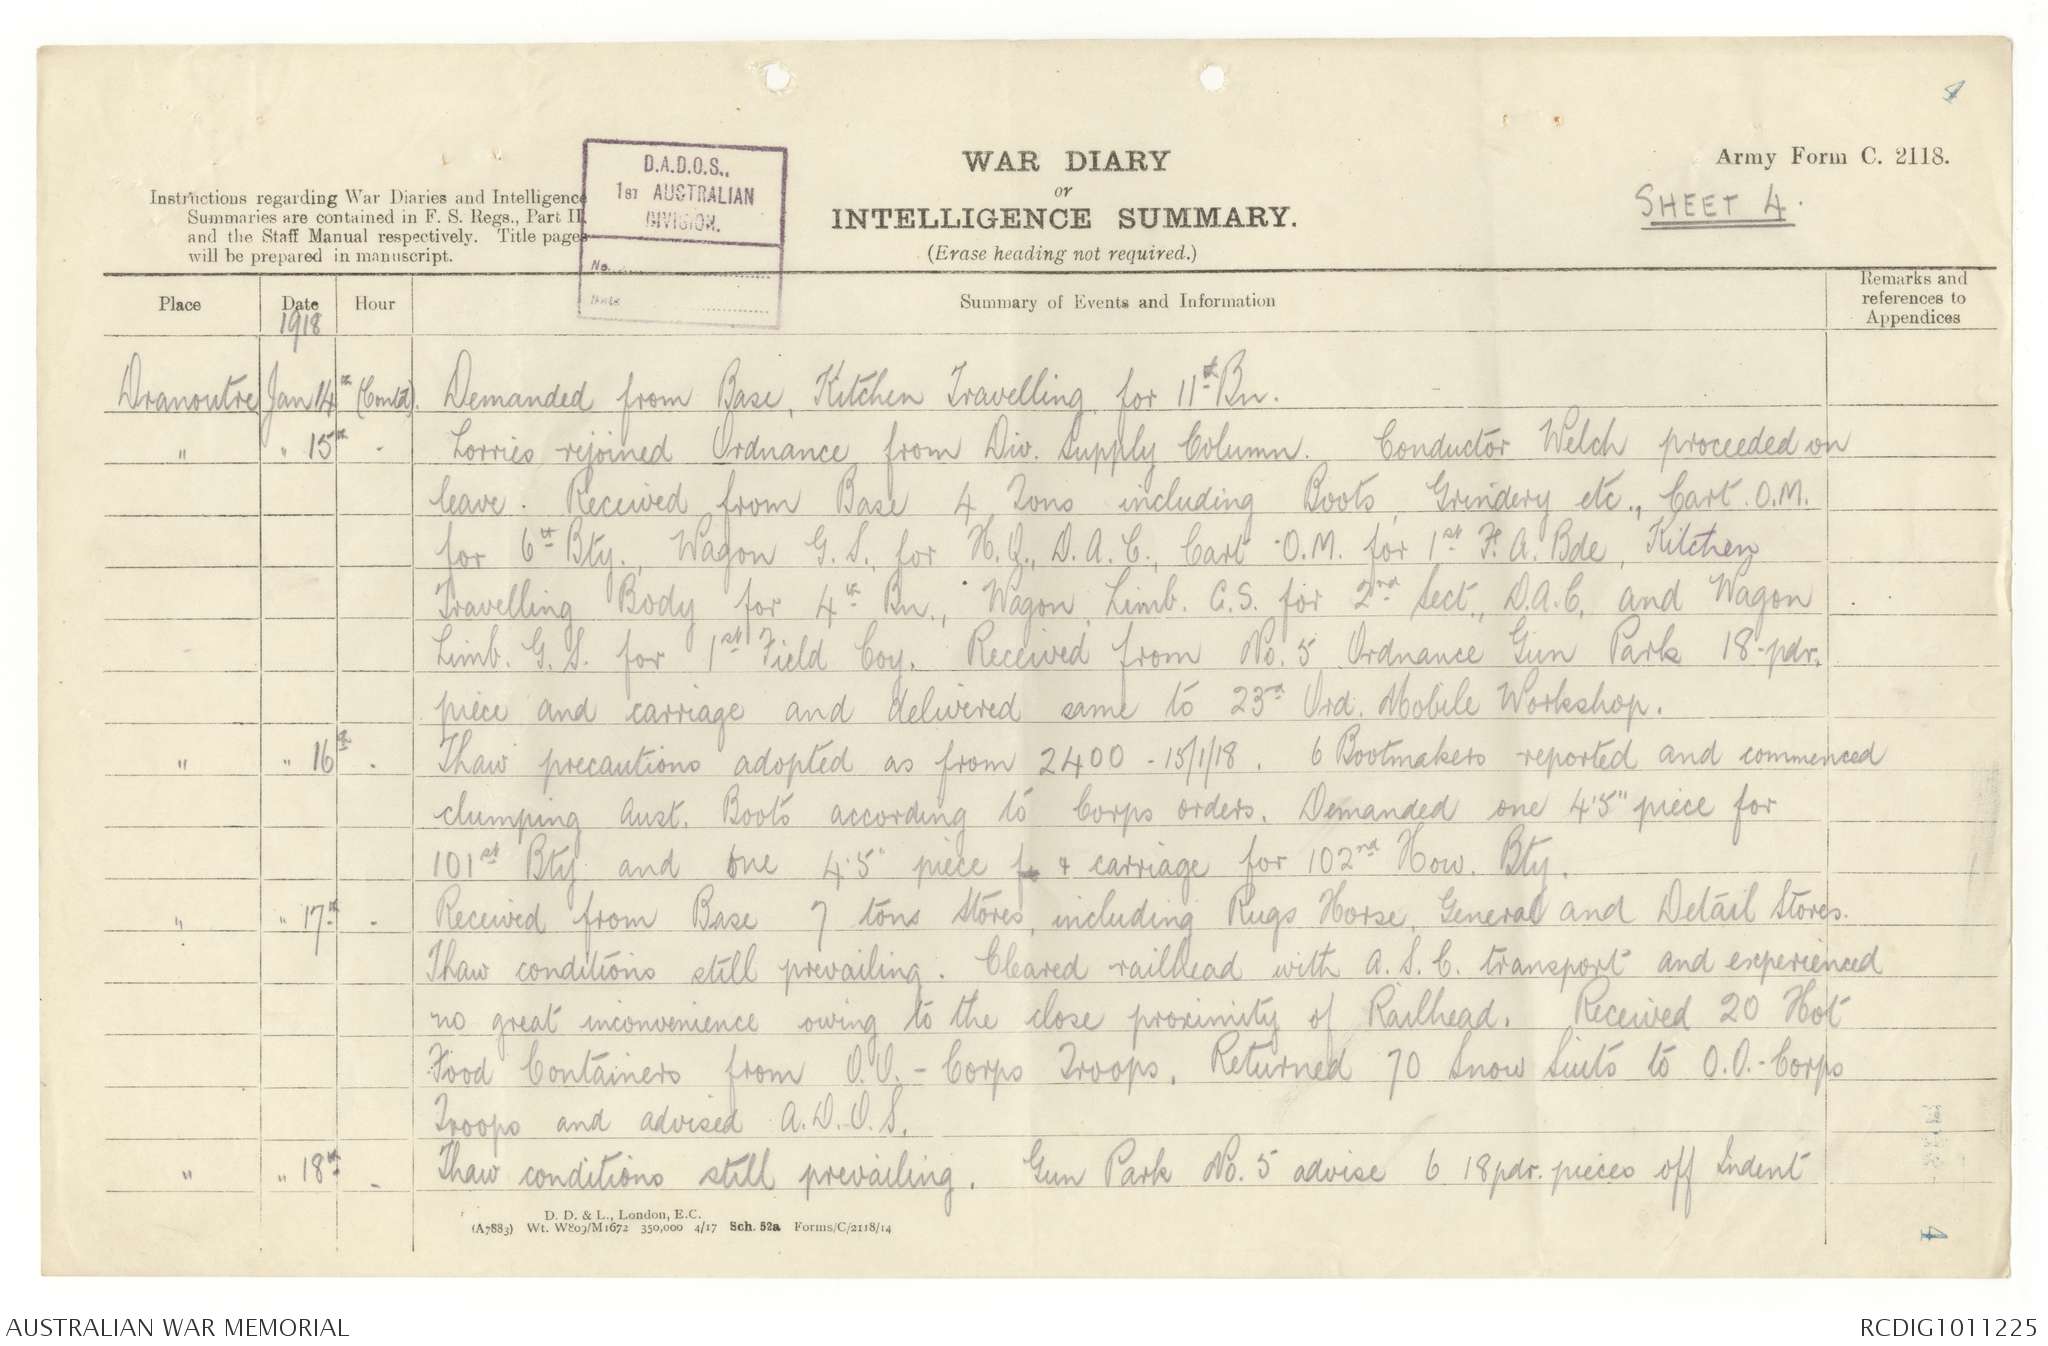 4
Army Form C. 2118.
SHEET 4.
WAR DIARY
or
INTELLIGENCE SUMMARY.
(Erase heading not required.)
Instructions regarding War Diaries and Intelligence
Summaries are contained in F. S. Regs., Part II.
and the Staff Manual respectively. Title pages
will be prepared in manuscript.
D.A.D.O.S.,
1ST AUSTRALIAN
DIVISION.
No.
Date
Place Date Hour Summary of Events and Information Remarks and references to Appendices
1918
Dranoutre Jan 14th (Contd). Demanded from Base, Kitchen Travelling for 11th Bn.
" " 15th - Lorries rejoined Ordnance from Div. Supply Column. Conductor Welch proceeded on
leave. Received from Base 4 Tons including Boots, Grindery etc., Cart. O.M.
for 6th Bty., Wagon G. S., for H.Q., D.A.C., Cart O.M. for 1st F.A. Bde, Kitchen
Travelling Body for 4th Bn., Wagon, Limb. G.S. for 2nd Sect., D.A.C. and Wagon
Limb. G. S. for 1st Field Coy. Received from No. 5 Ordnance Gun Park 18-pdr.
piece and carriage and delivered same to 23rd Ord. Mobile Workshop.
" " 16th - Thaw precautions adopted as from 2400 - 15/1/18. 6 Bootmakers reported and commenced
clumping Aust. Boots according to Corps orders. Demanded one 4.5" piece for
101st Bty and one 4.5" piece & carriage for 102nd How. Bty.
" " 17th - Received from Base 7 tons Stores, including Rugs Horse, General and Detail Stores.
Thaw conditions still prevailing. Cleared railhead with A.S.C. transport and experienced
no great inconvenience owing to the close proximity of Railhead. Received 20 Hot
Food Containers from O.O. - Corps Troops. Returned 70 Snow Suits to O.O. - Corps
Troops and advised A.D.O.S.
" " 18th - Thaw conditions still prevailing. Gun Park No. 5 advise 6 18pdr. pieces off Indent
D. D. & L., London, E.C.
(A7883) Wt. W809/M1672 350,000 4/17 Sch. 52a Forms/C/2118/14
4
AUSTRALIAN WAR MEMORIAL
RCDIG1011225